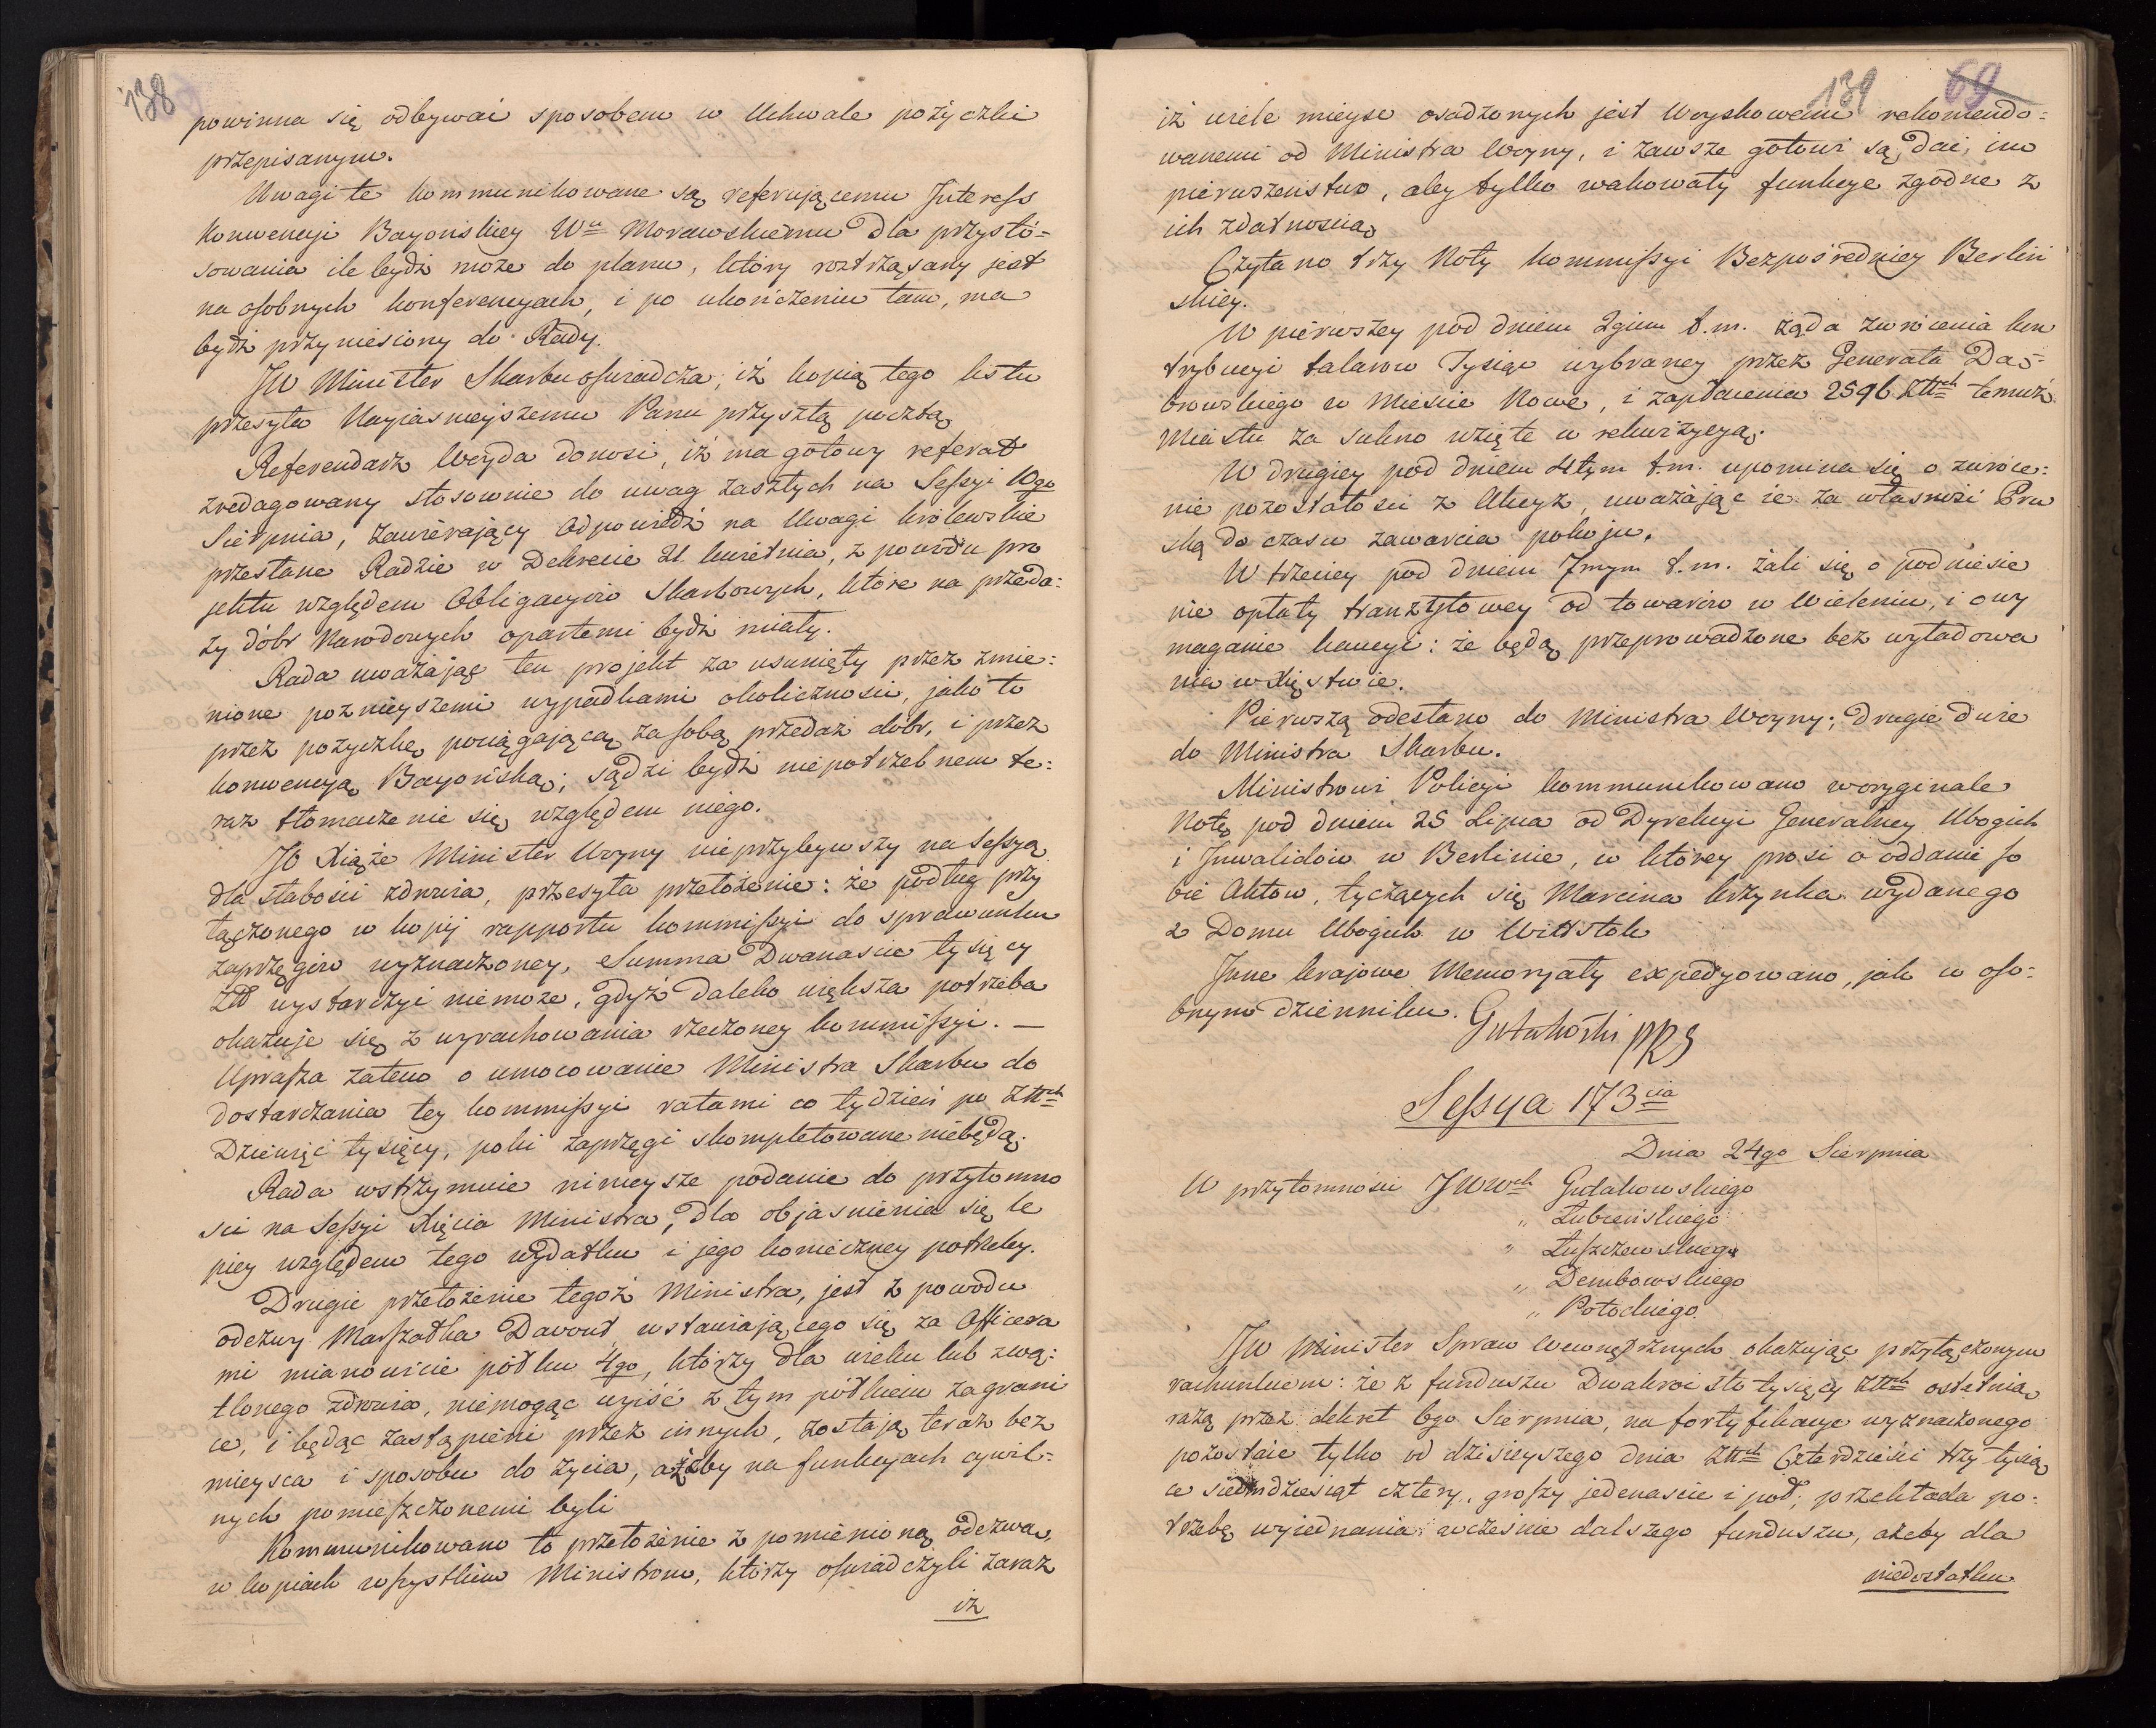 138
powinna się odbywać sposobem w Uchwale pożyczki
przepisanym.
Uwagi te kommunikowane są referującemu Interess
Konwencji Bayońskiey Wu Morawskiemu dla przysto=
sowania ile bydź może do planu, który roztrząsany jest
na osobnych konferencyach, i po ukończeniu tam, ma
bydź przyniesiony do Rady.
JW Minister Skarbu oświadcza, iż kopią tego listu
przesyła Nayiasnieyszemu Panu przyszłą pocztą
Referendarz Woyda donosi, iż ma gotowy referat
zredagowany stosownie do uwag zaszłych na Sessyi 10go
Sierpnia, zawierający odpowiedź na Uwagi królewskie
przesłane Radzie w Dekrecie 21 kwietnia, z powodu pro
jektu względem Obligacyiow Skarbowych, które na przeda=
ży dóbr Narodowych opartemi bydź miały.
Rada uważając ten projekt za usunięty przez zmie=
nione poznieyszemi wypadkami okoliczności, jako to
przez pożyczkę pociągającą za sobą przedaż dóbr, i przez
konwencyą Bayońską; sądzi bydź niepotrzebnem te=
raz tłomaczenie się względem niego.
JO Xiąże Minister Woyny nieprzybywszy na Sessyą
dla słabości zdrowia, przesyła przełożenie: że podług przy
łączonego w kopij rapportu kommissyi do sprawunku
zaprzęgów wyznaczoney, Summa Dwanaście tysięcy
Złł wystarczyć niemoże, gdyż daleko większa potrzeba
okazuje się z wyrachowania rzeczoney kommissyi. —
Uprasza zatem o umocowanie Ministra Skarbu do
dostarczania tey kommissyi ratami co tydzień po Złłch
Dziewięć tysięcy, poki zaprzęgi skompletowane niebędą.
Rada wstrzymuie ninieysze podanie do przytomno
ści na Sessyi Xięcia Ministra, dla objasnienia się le
piey względem tego wydatku i jego konieczney potrzeby.
Drugie przełożenie tegoż Ministra, jest z powodu
odezwy Marszałka Davout wstawiającego się za Officera
mi mianowicie półku 4go, którzy dla wieku lub zwą=
tlonego zdrowia, niemogąc wyiść z tym półkiem zagrani
cę, i będąc zastąpieni przez innych, zostają teraz bez
mieysca i sposobu do życia, ażeby na funkcyach cywil=
nych pomieszczonemi byli
Kommunikowano to przełożenie z pomienioną odezwą,
w kopiach wszystkim Ministrom, którzy oświadczyli zaraz
iż
139 69
iż wiele mieysc osadzonych jest Woyskowemi rekomendo=
wanemi od Ministra Woyny, i zawsze gotowi są dać, im
pierwszeństwo, aby tylko wakowały funkcye zgodne z
ich zdatnością
Czytano trzy Noty kommissyi Bezpośredniey Berliń
skiey.
W pierwszey pod dniem 2gim t.m. żąda zwrócenia kon
trybucyi talarow Tysiąc wybraney przez Generała Dą=
browskiego w Mieście Nowe, i zapłacenia 2596 Złłch temuż
Miastu za sukno wzięte w rekwizycyą.
W drugiey pod dniem 4tym t.m. upomina się o zwróce=
nie pozostałości z Akcyz, uważając ie za własność Pru
ską do czasu zawarcia pokoju.
W trzeciey pod dniem 7mym t.m. żali się o podniesie
nie opłaty tranzytowey od towarów w Wieleniu, i owy
maganie kaucyi: że będą przeprowadzone bez wyładowa
nia w Xięstwie.
Pierwszą odesłano do Ministra Woyny; drugie dwie
do Ministra Skarbu.
Ministrowi Policyi kommunikowano woryginale
Notę pod dniem 25 Lipca od Dyrekcyi Generalney Ubogich
i Inwalidów w Berlinie, w którey prosi o oddanie so
bie Aktow, tyczących się Marcina Krzynka wydanego
z Domu Ubogich w Wittstok
Inne krajowe Memoryały expedyowano, jak w oso=
bnym dzienniku.
Gutakowski PRS
Sessya 173cia
Dnia 24go Sierpnia
W przytomności JWWch Gutakowskiego
" Łubieńskiego
" Łuszczewskiego
" Dembowskiego
" Potockiego
JW Minister Spraw Wewnętrznych okazując przyłączonym
rachunkiem: że z funduszu Dwakroć sto tysięcy Złłch ostatnią
razą przez dekret 6go Sierpnia, na fortyfikacye wyznaczonego
pozostaie tylko od dzisieyszego dnia Złłch Czterdzieści trzy tysią
ce siedmdziesiąt cztery, groszy jedenaście i pół; przekłada po=
trzebę wyiednania wcześnie dalszego funduszu, ażeby dla
niedostatku